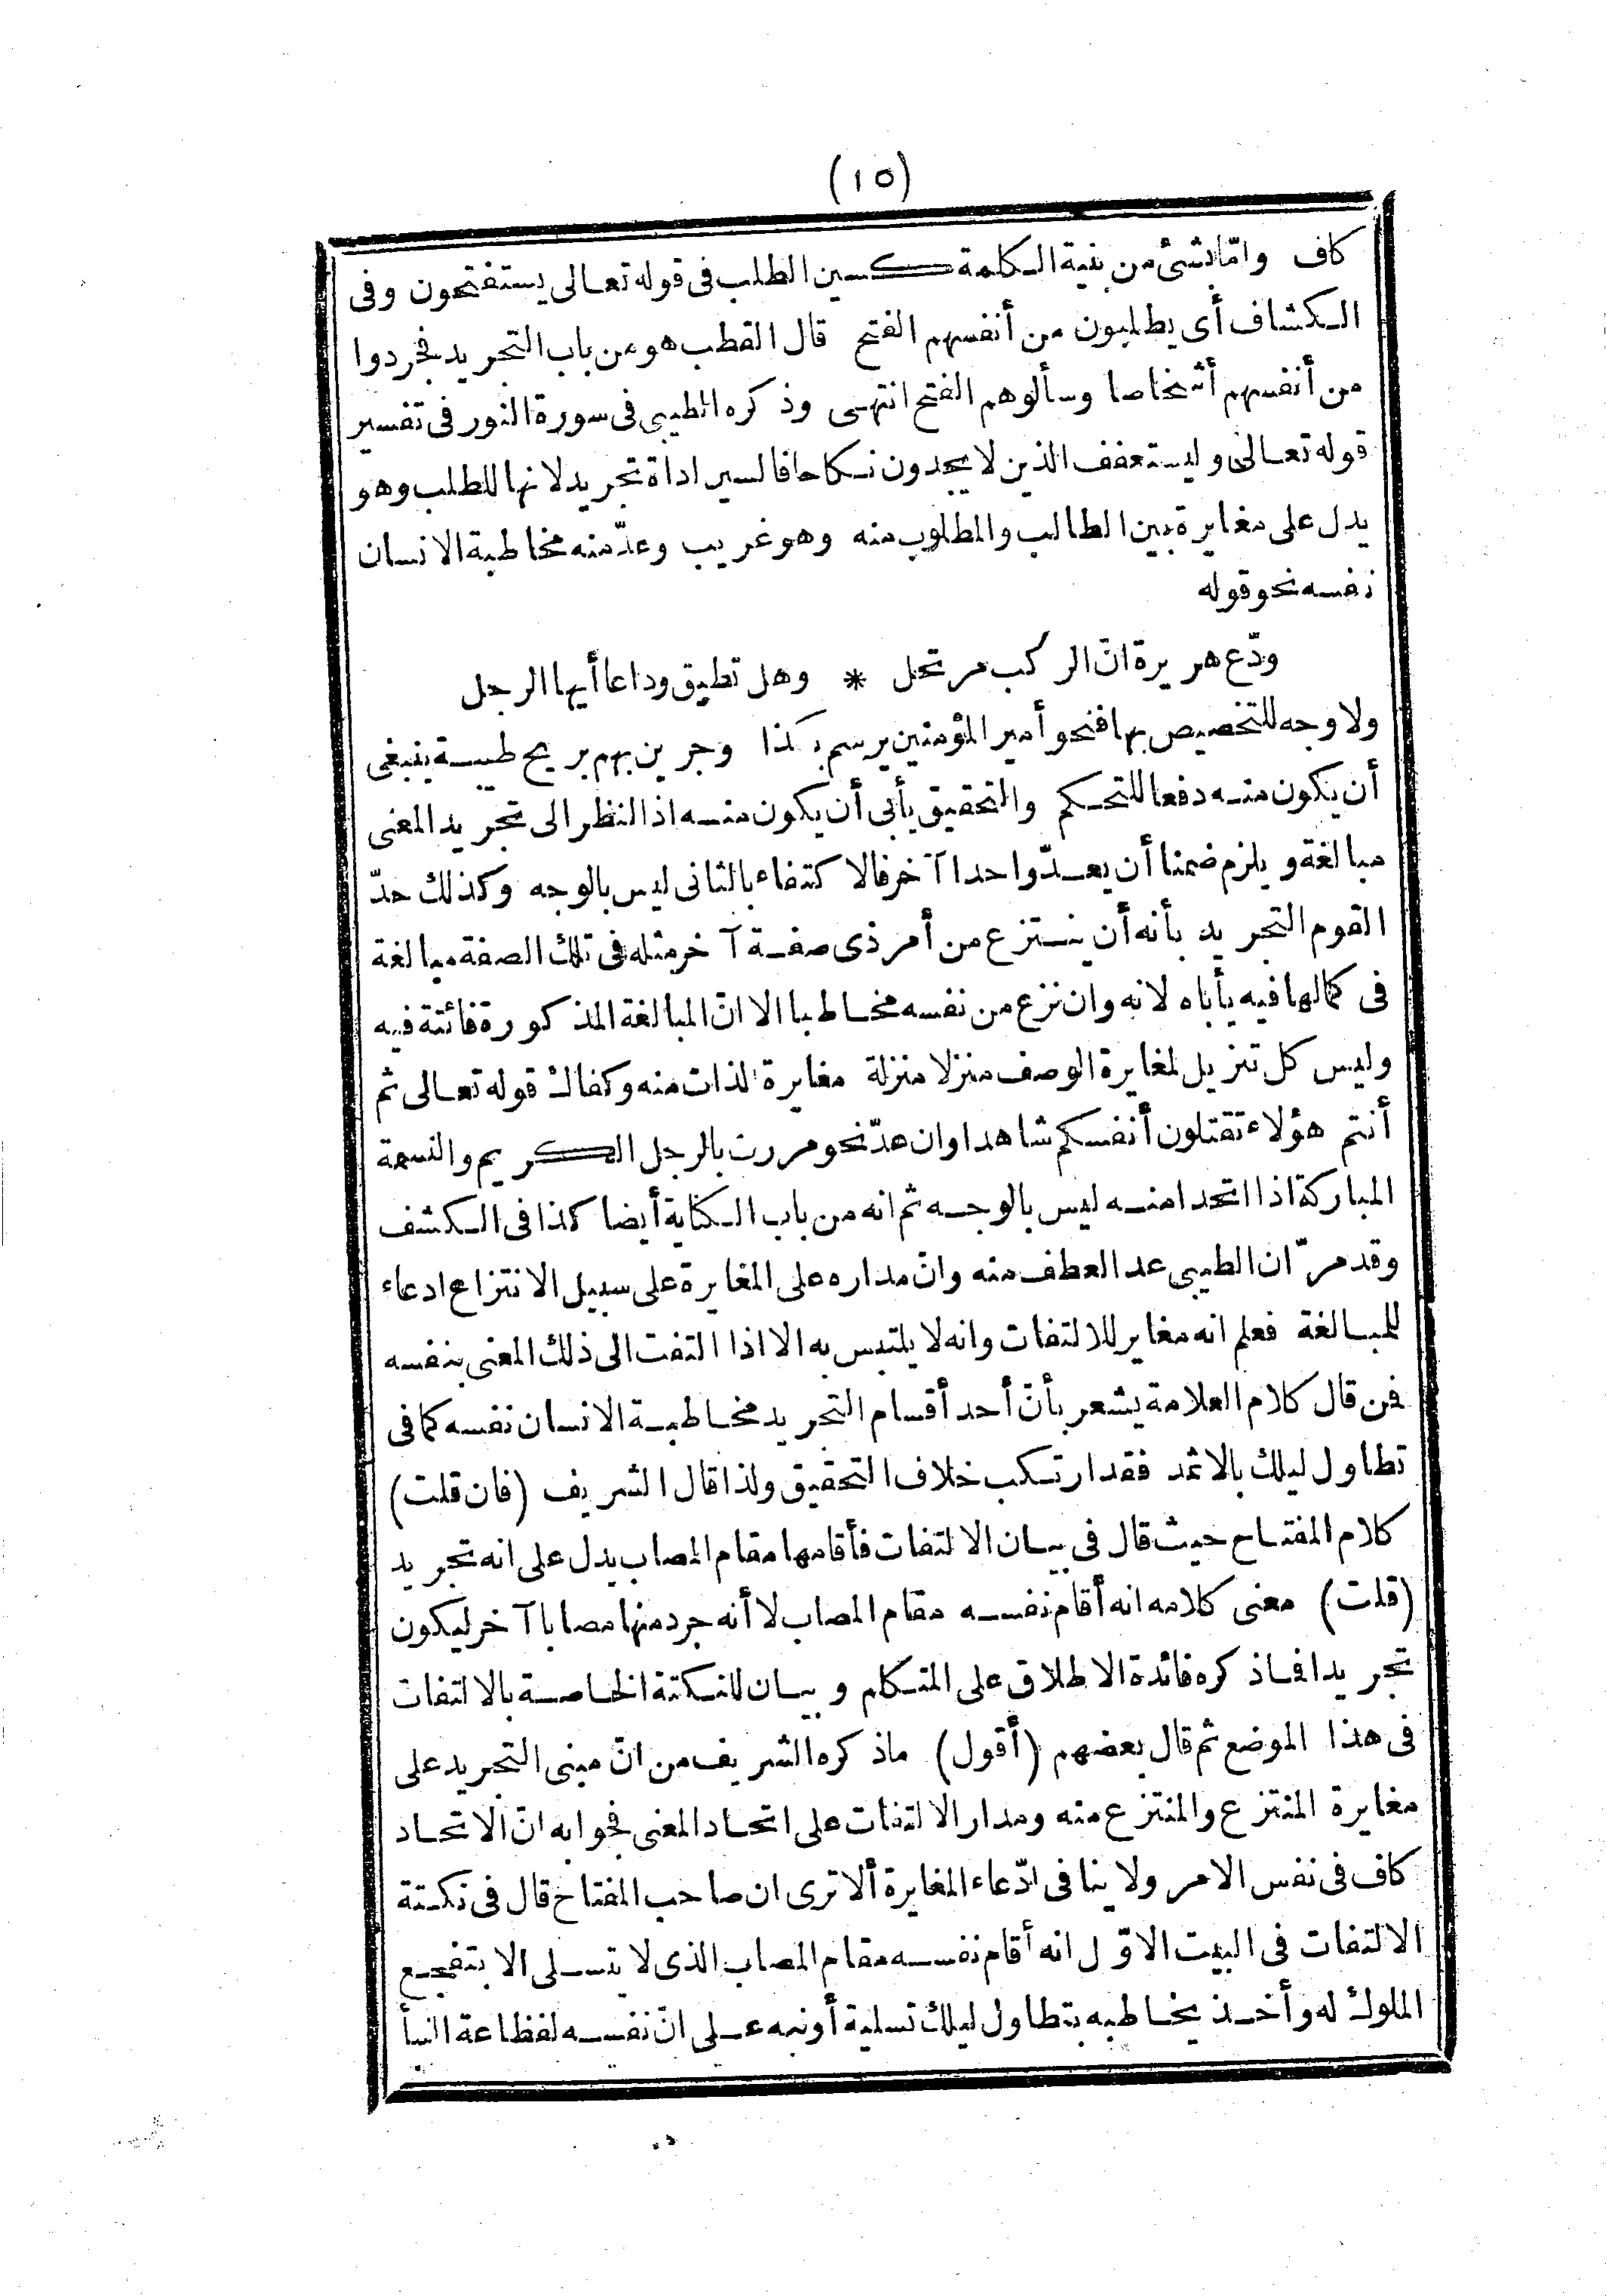 (١٥)
كاف وامّا بشئ من بنية الكلمة كسين الطلب فى قوله تعالى يستفتحون وفى
الكشاف أى يطلبون من أنفسهم الفتح قال القطب هو من باب التجريد فجردوا
من أنفسهم أشخاصا وسألوهم الفتح انتهى وذكره الطيبى فى سورة النور فى تفسير
قوله تعالى وليستعفف الذين لا يجدون نكاحا فالسين اداة تجريد لانها للطلب وهو
يدل على مغايرة بين الطالب والمطلوب منه وهو غريب وعدّ منه مخاطبة الانسان
نفسه نحو قوله
ودّع هريرة انّ الركب مرتحل * وهل تطيق وداعا أيها الرجل
ولا وجه للتخصيص بها فنحو أمير المؤمنين يرسم بكذا وجرين بهم بريح طيبة ينبغى
أن يكون منه دفعا للتحكم والتحقيق يأبى أن يكون منه اذ النظر الى تجريد المعنى
مبالغة ويلزم ضمنا أن يعدّ واحدا آخر فالاكتفاء بالثانى ليس بالوجه وكذلك حدّ
القوم التجريد بأنه أن ينتزع من أمر ذى صفة آخر مثله فى تلك الصفة مبالغة
فى كمالها فيه يأباه لانه وان نزع من نفسه مخاطبا الا انّ المبالغة المذكورة فائتة فيه
وليس كل تنزيل لمغايرة الوصف منزلا منزلة مغايرة الذات منه وكفاك قوله تعالى ثم
أنتم هؤلاء تقتلون أنفسكم شاهدا وان عدّ نحو مررت بالرجل الكريم والنسمة
المباركة اذا اتحدا منه ليس بالوجه ثم انه من باب الكناية أيضا كذا فى الكشف
وقد مرّ ان الطيبى عد العطف منه وانّ مداره على المغايرة على سبيل الانتزاع ادعاء
للمبالغة فعلم انه مغاير للالتفات وانه لا يلتبس به الا اذا التفت الى ذلك المعنى بنفسه
فمن قال كلام العلامة يشعر بأنّ أحد أقسام التجريد مخاطبة الانسان نفسه كما فى
تطاول ليلك بالاثمد فقد ارتكب خلاف التحقيق ولذا قال الشريف (فان قلت)
كلام المفتاح حيث قال فى بيان الالتفات فأقامها مقام المصاب يدل على انه تجريد
(قلت) معنى كلامه انه أقام نفسه مقام المصاب لا أنه جرد منها مصابا آخر ليكون
تجريدا فماذكره فائدة الاطلاق على المتكلم وبيان للنكتة الخاصة بالالتفات
فى هذا الموضع ثم قال بعضهم (أقول) ماذكره الشريف من انّ مبنى التجريد على
مغايرة المنتزع والمنتزع منه ومدار الالتفات على اتحاد المعنى فجوابه انّ الاتحاد
كاف فى نفس الامر ولا ينافى ادّعاء المغايرة ألا ترى ان صاحب المفتاح قال فى نكتة
الالتفات فى البيت الاوّل انه أقام نفسه مقام المصاب الذى لا يتسلى الا بتفجع
الملوك له وأخذ يخاطبه بتطاول ليلك تسلية أو نبه على انّ نفسه لفظاعة النبأ